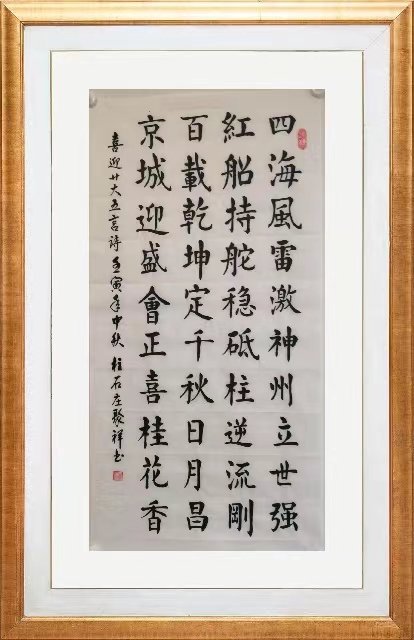 四海風雷激神州立世强
紅船持舵稳砥柱逆流剛
百載乾坤定千秋日月昌
京城迎盛會正喜桂花香
喜迎廿大五言詩 壬寅年中秋 柱石左聚祥书